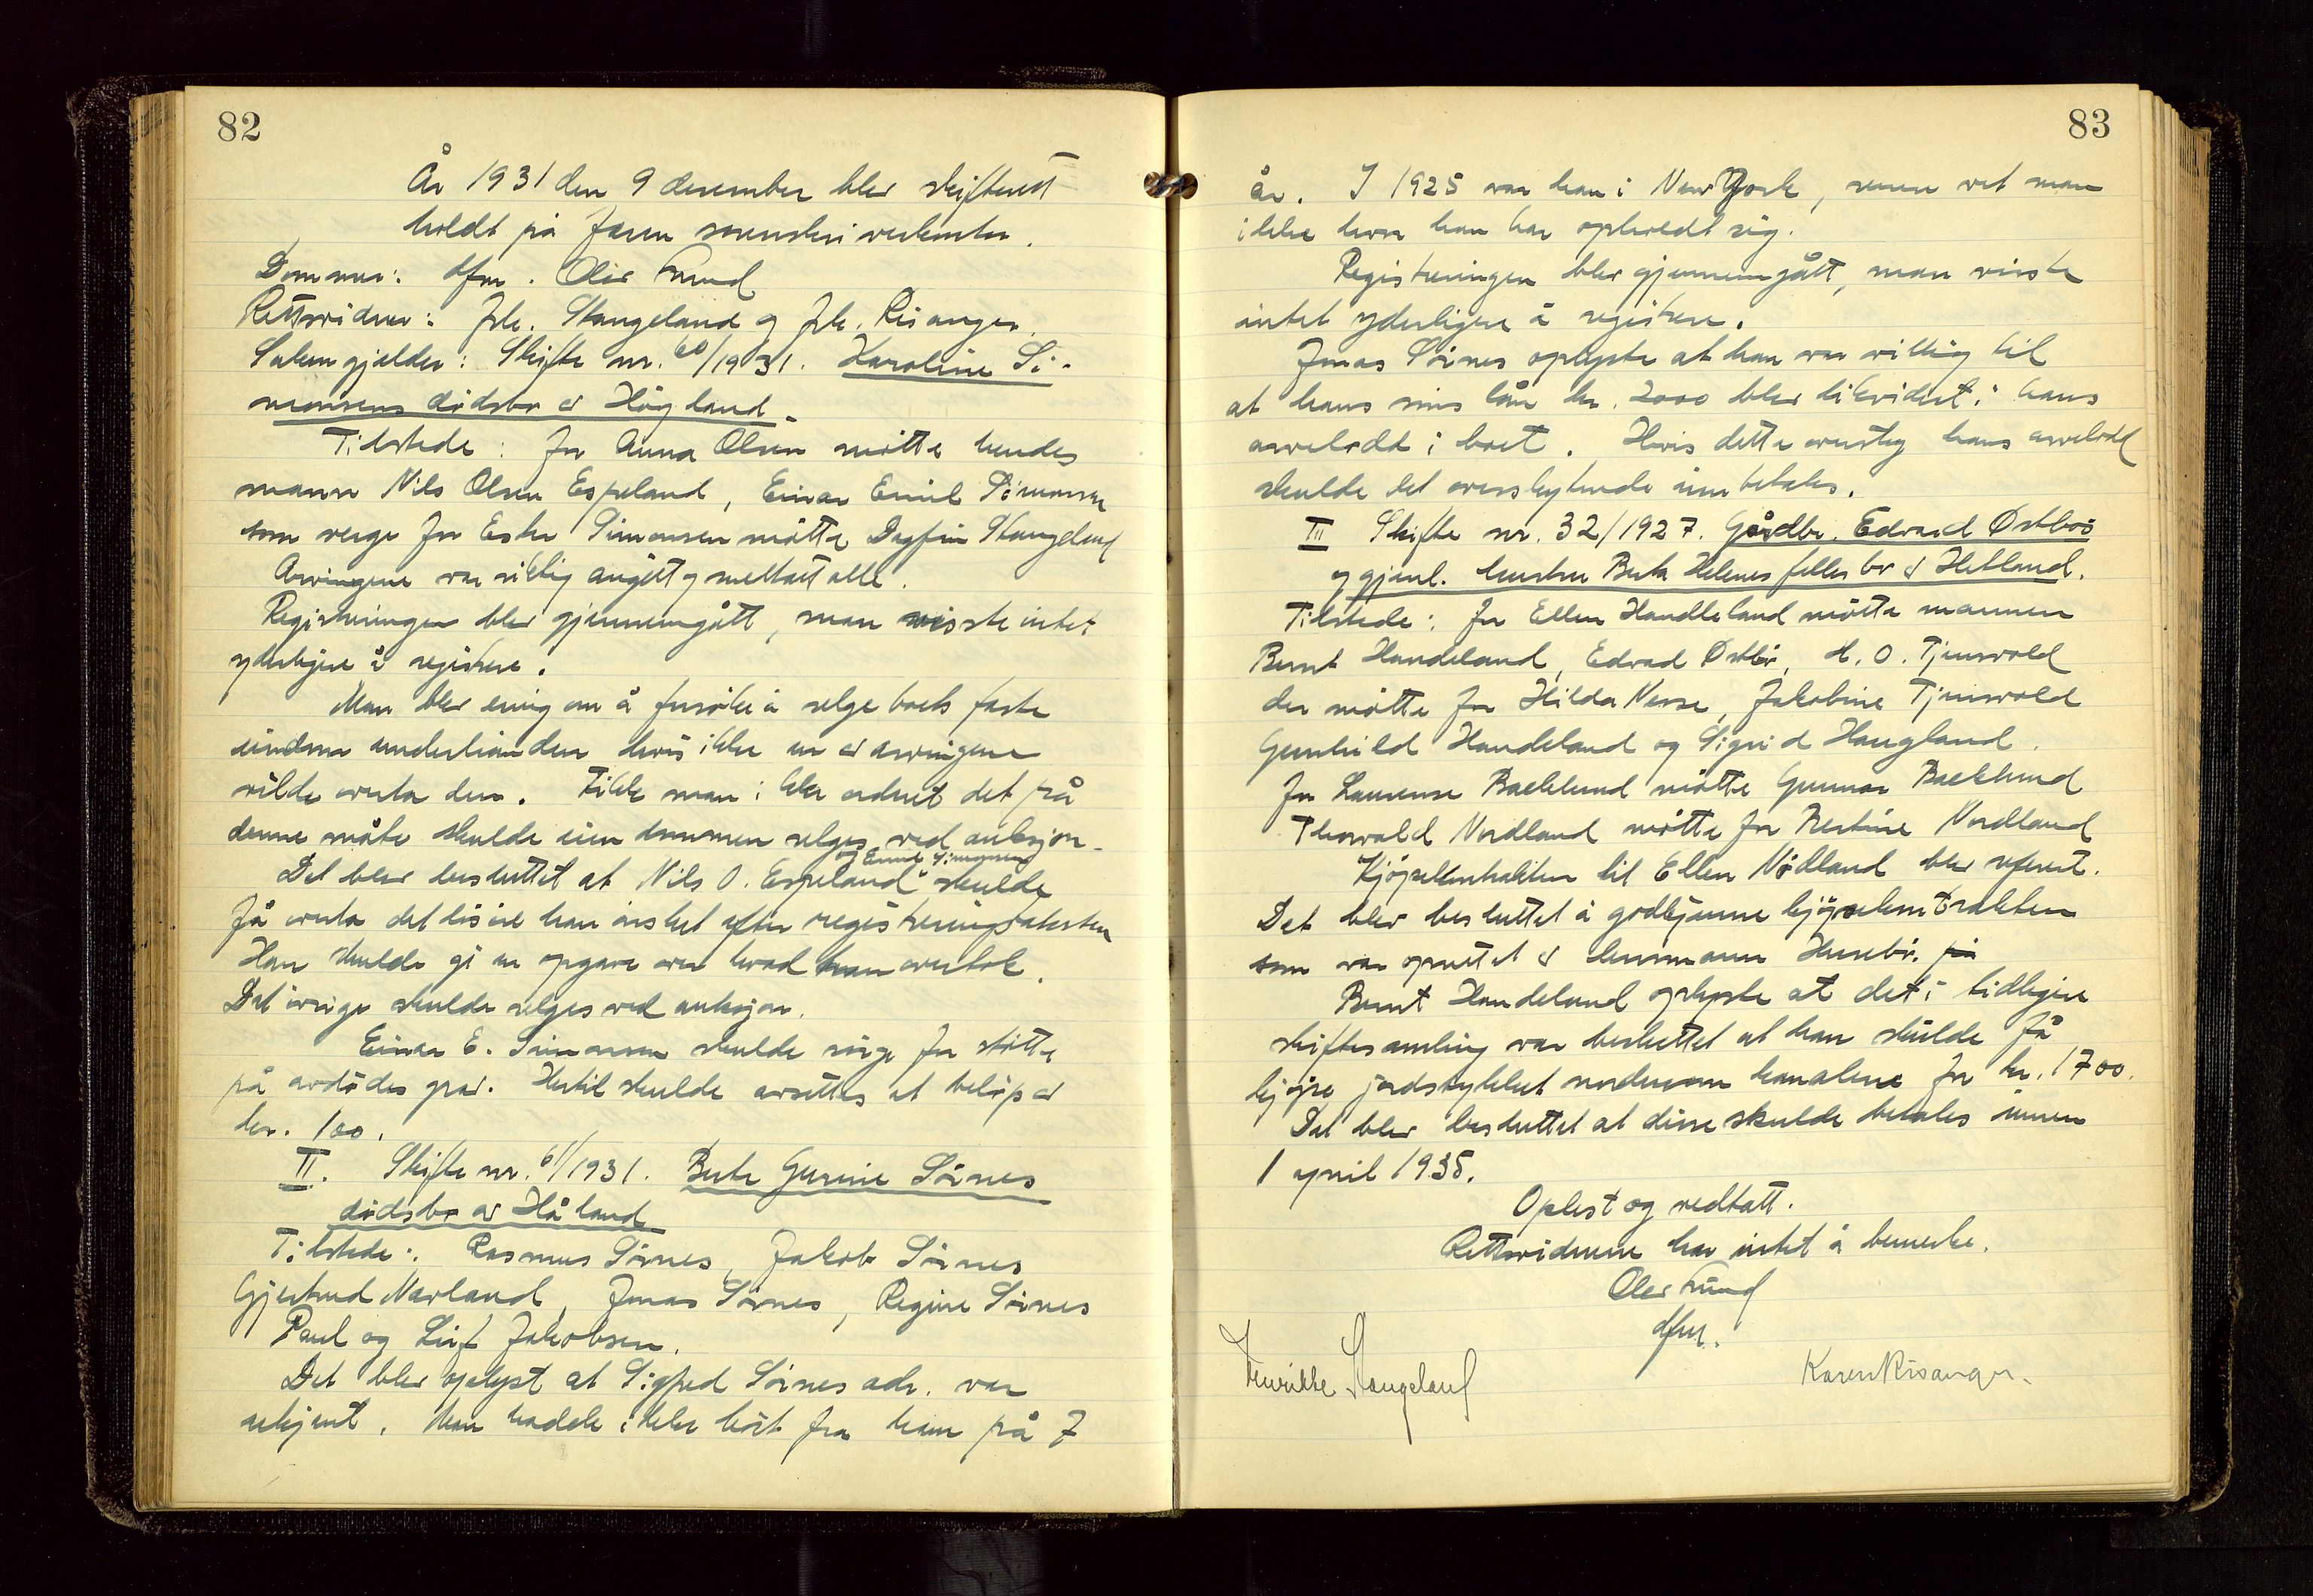 82
År 1931 den 9 desember blev skifterett
holdt på Jæren sorenskriverkontor.
Dommer: dfm. Olav Lund
Rettsvidner: frk. Stangeland og frk. Risanger.
Saken gjelder: Skifte nr. 60/1931. Karoline Si-
monsens dødsbo av Høgland.
Tilstede: for Anna Olsen møtte hendes
mann Nils Olsen Espeland, Einar Emil Simonsen
som verge for Ester Simonsen møtte Dagfin Stangeland
Arvingene var riktig angitt og mottatt alle.
Registreringen blev gjennemgått, man visste intet
yderligere å registrere.
Man blev enig om å forsøke å selge boets faste
eiendom underhånden hvis ikke en av arvingene
vilde overta den. Fikk man ikke ordnet det på
denne måte skulde eiendommen selges ved auksjon.
Det blev besluttet at Nils O. Espeland og Einar Simonsen skulde
få overta det løsøre han ønsket efter registreringstaksten
Han skulde gi en opgave over hvad han overtok.
Det øvrige skulde selges ved auksjon.
Einar E. Simonsen skulde sørge for støtte
på avdødes grav. Hertil skulde avsettes et beløp av
kr. 100.
II. Skifte nr. 61/1931. Berte Gurine Sørnes
dødsbo av Håland
Tilstede: Rasmus Sørnes, Jakob Sørnes
Gjertrud Nærland, Jonas Sørnes, Regine Sørnes
Paul og Leif Jakobsen.
Det blev oplyst at Sigfred Sørnes adr. var
ukjent. Man hadde ikke hørt fra ham på 7
83
år. I 1925 var han i New York, senere vet man
ikke hvor han har opholdt sig.
Registreringen blev gjennemgått, man visste
intet yderligere å registrere.
Jonas Sørnes oplyste at han var villig til
at hans lån kr. 2000 blev likvidert i hans
arvelodd i boet. Hvis dette oversteg hans arvelodd
skulde det overskytende innbetales.
III Skifte nr. 32/1927. Gårdbr. Edvard Østbøs
og gjenl. hustru Berta Helenes felles bo av Hetland.
Tilstede: for Ellen Handleland møtte mannen
Bernt Handeland, Edvard Østbø, H. O. Tjensvold
der møtte for Hilda Nesse, Jakobine Tjensvold
Gunhild Handeland og Sigrid Haugland.
for Laurense Backlund møtte Gunnar Backlund
Thorvald Nordland møtte for Kerstine Nordland
Kjøpekontrakten til Ellen Nødland blev referert.
Det blev besluttet å godkjenne kjøpekontrakten
som var oprettet av lensmann Husebø. på
Bernt Handeland oplyste at det i tidligere
skiftesamling var besluttet at han skulde få
kjøpe jordstykket nordenom kanalene for kr. 1700.
Det blev besluttet at disse skulde betales innen
1 april 1935.
Oplest og vedtatt.
Rettsvidnene har intet å bemerke.
Olav Lund
dfm.
Henrikke Stangeland
Karen Risanger.